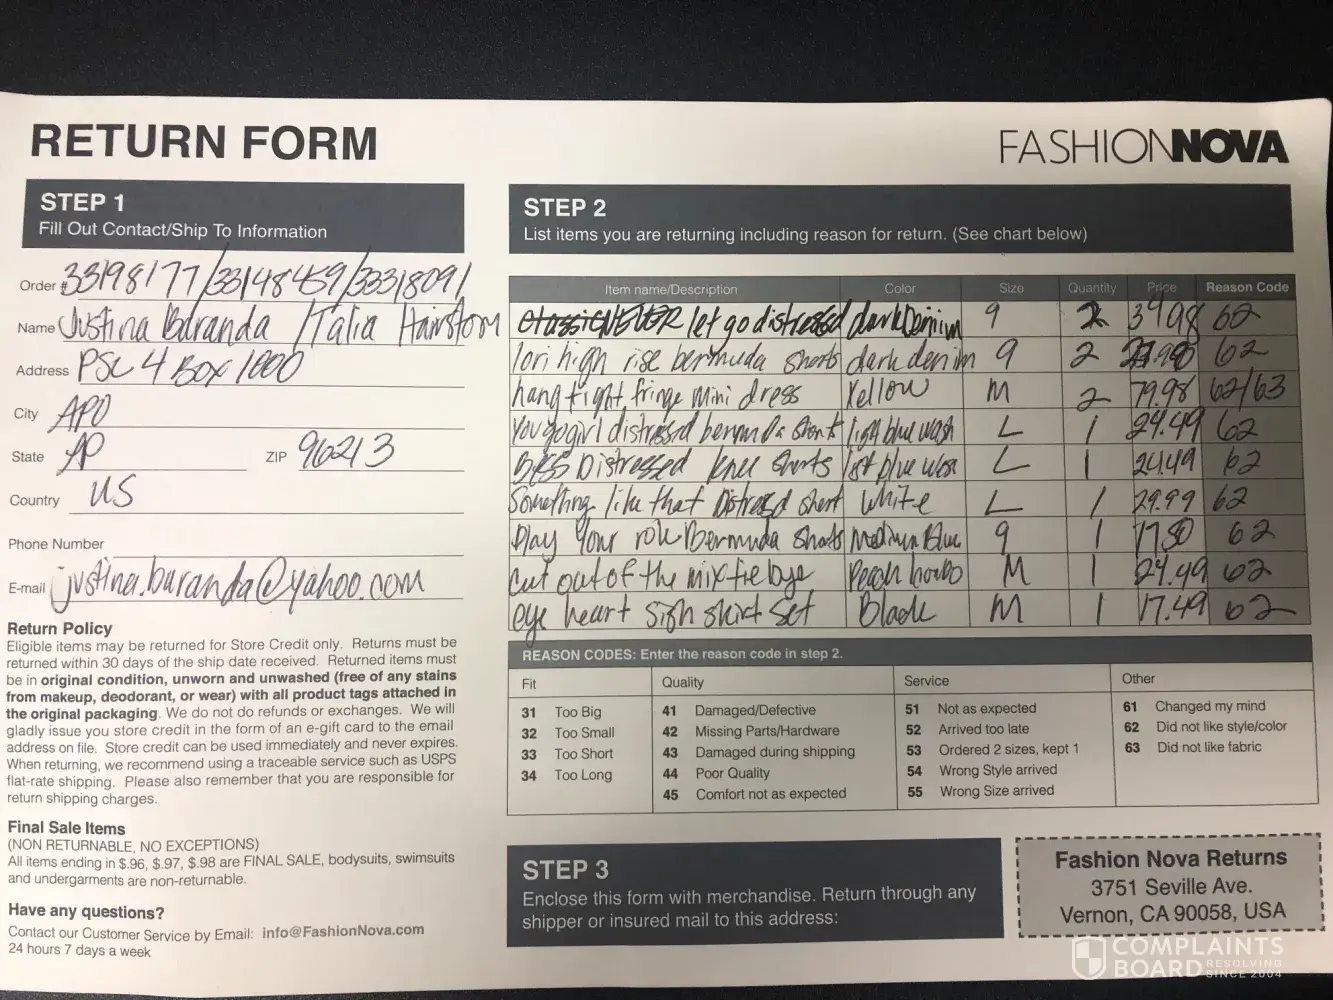 RETURN FORM
FASHIONNOVA
STEP 1
Fill Out Contact/Ship To Information
Order # 33198177/33148459/33318091
Name Justina Buranda / Talia Hairston
Address PSC 4 Box 1000
City APO
State AP ZIP 96213
Country US
Phone Number
E-mail justina.buranda@yahoo.com
Return Policy
Eligible items may be returned for Store Credit only. Returns must be
returned within 30 days of the ship date received. Returned items must
be in original condition, unworn and unwashed (free of any stains
from makeup, deodorant, or wear) with all product tags attached in
the original packaging. We do not do refunds or exchanges. We will
gladly issue you store credit in the form of an e-gift card to the email
address on file. Store credit can be used immediately and never expires.
When returning, we recommend using a traceable service such as USPS
flat-rate shipping. Please also remember that you are responsible for
return shipping charges.
Final Sale Items
(NON RETURNABLE, NO EXCEPTIONS)
All items ending in $.96, $.97, $.98 are FINAL SALE, bodysuits, swimsuits
and undergarments are non-returnable.
Have any questions?
Contact our Customer Service by Email: info@FashionNova.com
24 hours 7 days a week
STEP 2
List items you are returning including reason for return. (See chart below)
Item name/Description Color Size Quantity Price Reason Code
NEVER let go distressed dark Denim 9 2 34.98 62
lori high rise bermuda shorts dark denim 9 2 62
hang tight fringe mini dress Yellow M 2 79.98 62/63
You go girl distressed bermuda shorts light blue wash L 1 24.49 62
Distressed knee shorts blue L 1 24.49 62
Something like that Distressd short White L 1 29.99 62
Play your role bermuda shorts Medium Blue 9 1 17.50 62
cut out of the mix tie bye Peach M 1 24.49 62
eye heart sigh skirt set Black M 1 17.49 62
REASON CODES: Enter the reason code in step 2.
Fit Quality Service Other
31 Too Big 41 Damaged/Defective 51 Not as expected 61 Changed my mind
32 Too Small 42 Missing Parts/Hardware 52 Arrived too late 62 Did not like style/color
33 Too Short 43 Damaged during shipping 53 Ordered 2 sizes, kept 1 63 Did not like fabric
34 Too Long 44 Poor Quality 54 Wrong Style arrived
45 Comfort not as expected 55 Wrong Size arrived
STEP 3
Enclose this form with merchandise. Return through any
shipper or insured mail to this address:
Fashion Nova Returns
3751 Seville Ave.
Vernon, CA 90058, USA
COMPLAINTS
BOARD RESOLVING
SINCE 2004